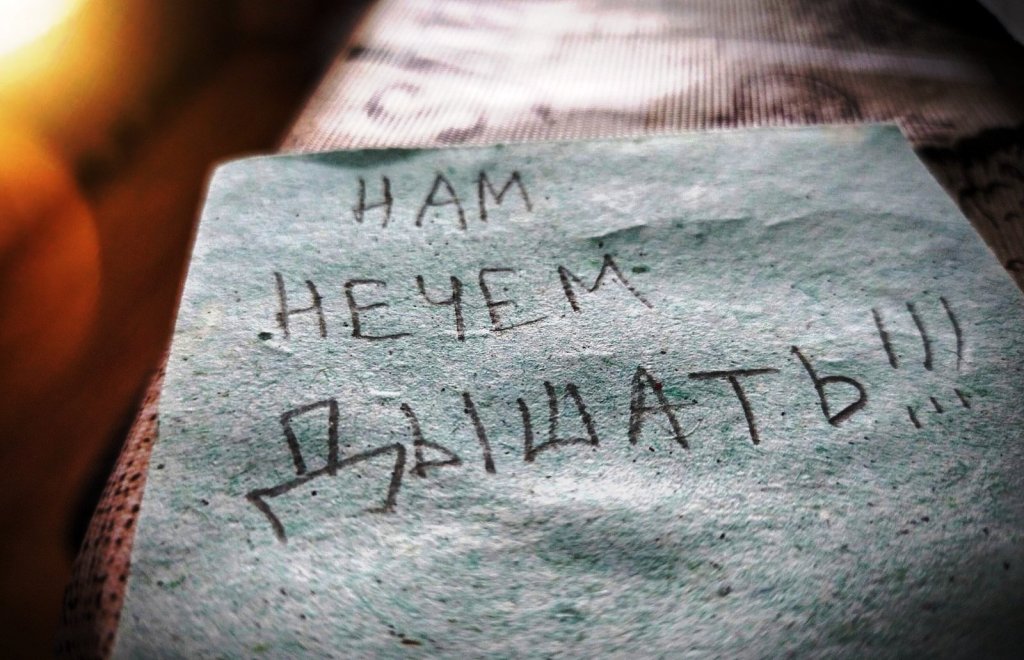 НАМ
НЕЧЕМ
ДЫШАТЬ!!!